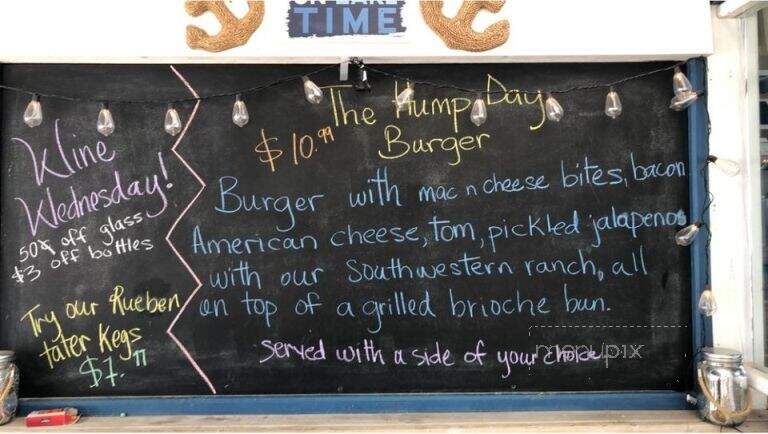 ON LAKE
TIME
Kline
Wlednesday!
50¢ off glass
$3 off bottles
Try our Rueben
tater Kegs
$7.77
The Hump Day
Burger
$10.99
Burger with mac n cheese bites, bacon
American cheese, tom, pickled jalapenos
with our Southwestern ranch, all
on top of a grilled brioche bun.
Served with a side of your choice
menupix